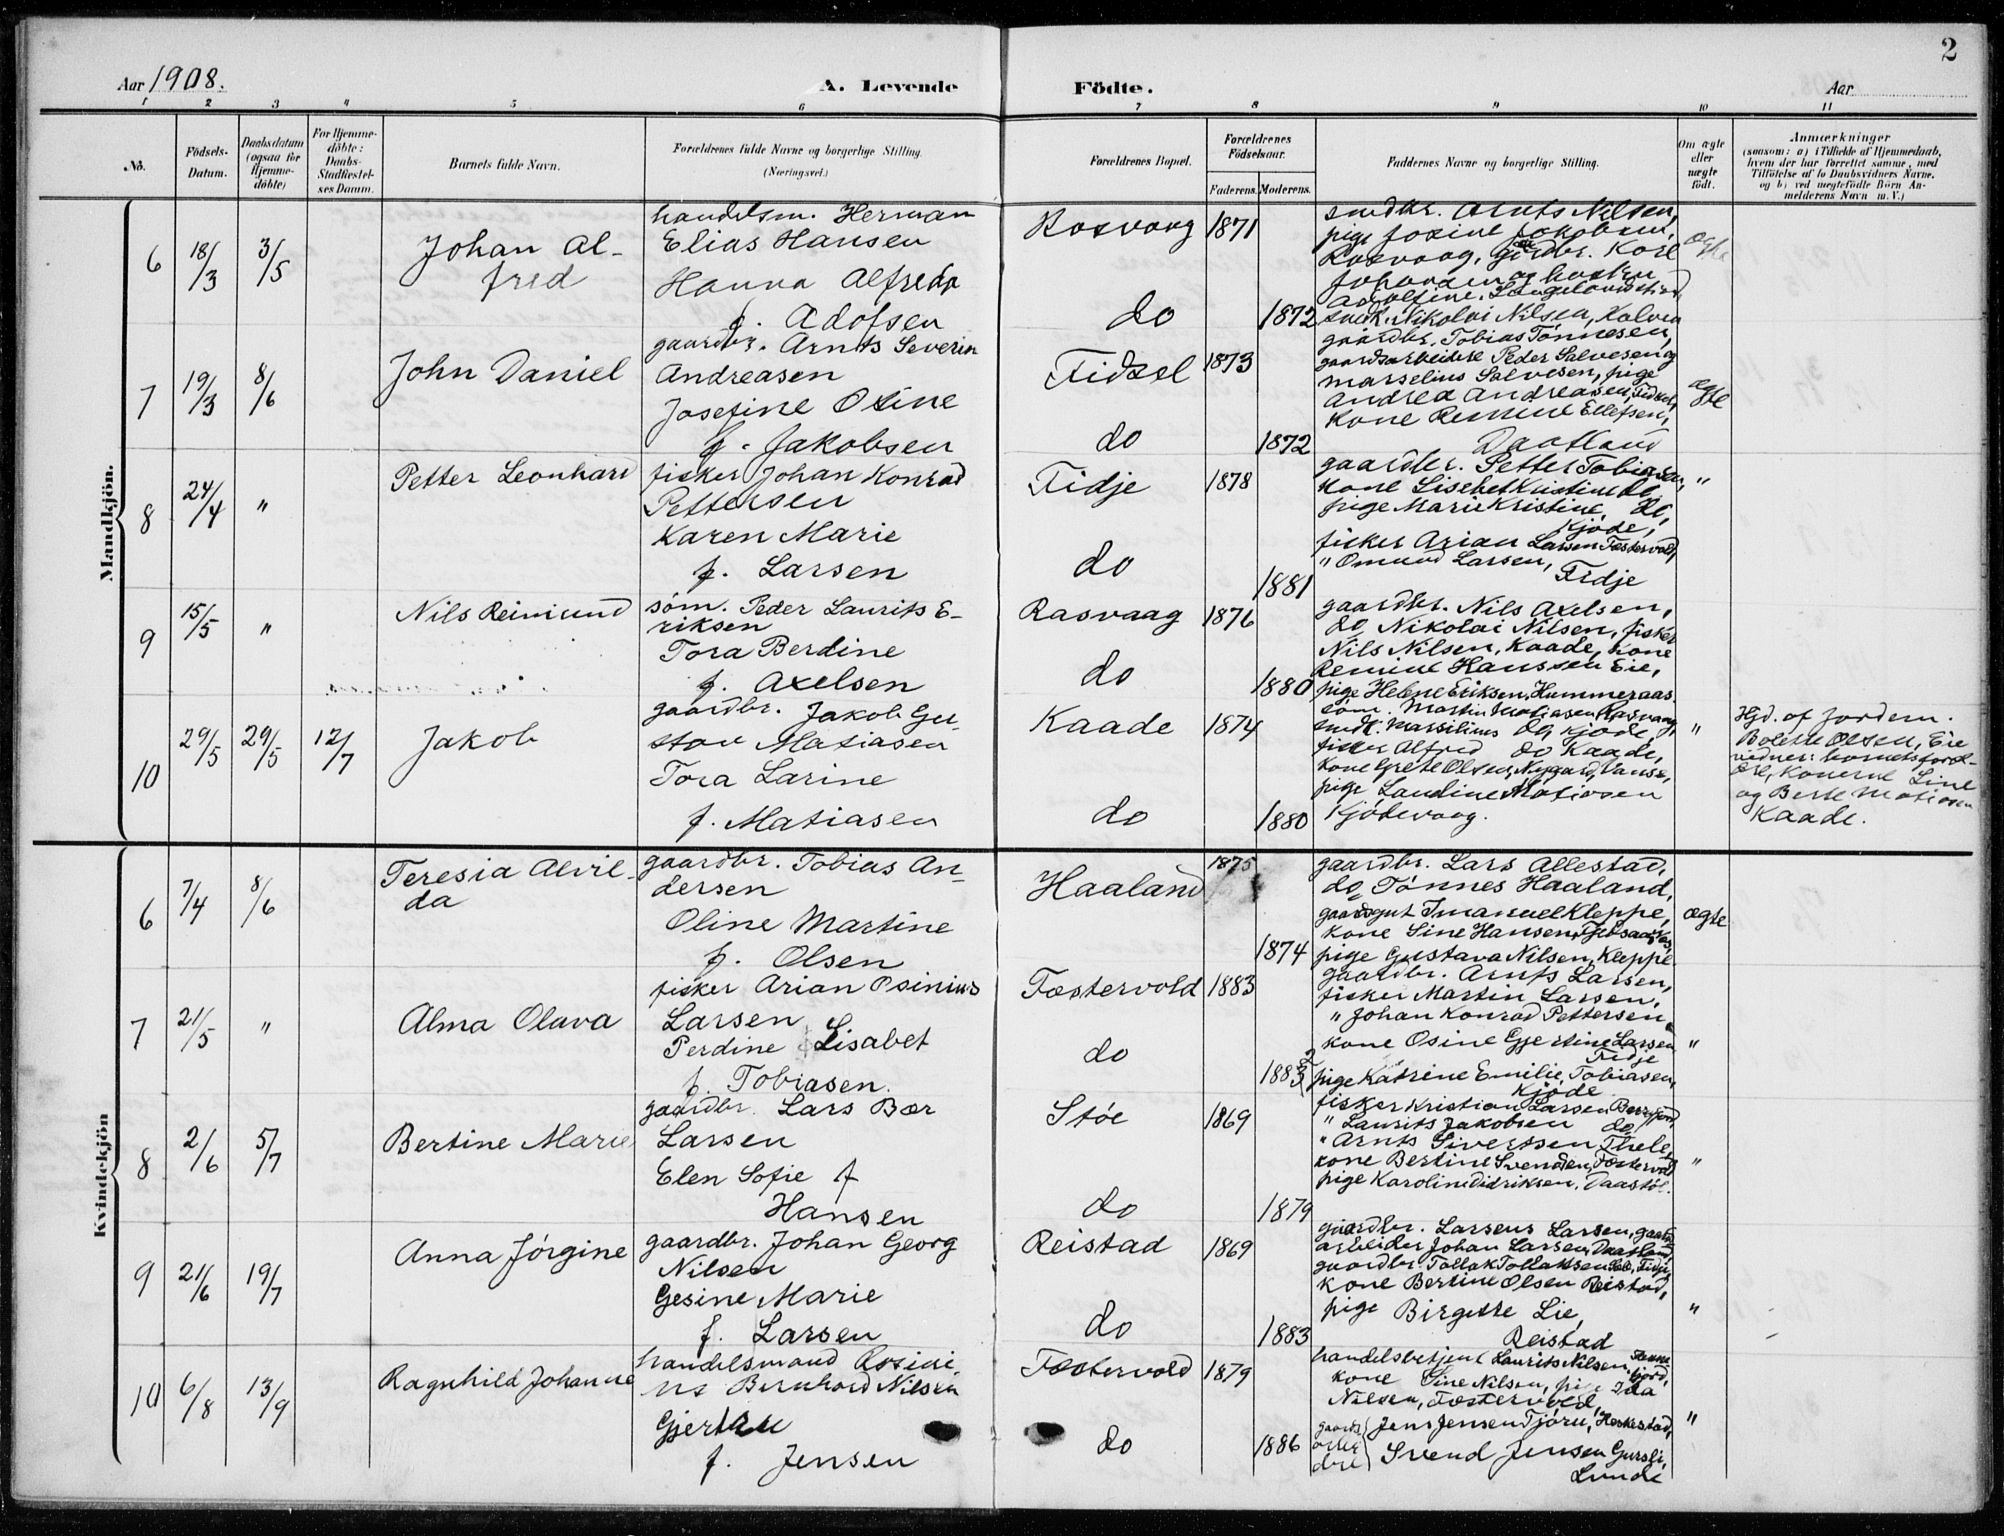 2
Aar 1908.
A. Levende Födte.
Aar
1 2 3 4 5 6 7 8 9 10 11
Nô.
Födsels-Datum.
Daabsdatum (ogsaa for Hjemme-döbte)
For Hjemme-döbte: Daabs-Stadfæstel-ses Datum.
Barnets fulde Navn.
Forældrenes fulde Navne og borgerlige Stilling. (Næringsvei.)
Forældrenes Bopæl.
Forældrenes Födselsaar.
Faderens. Moderens.
Faddernes Navne og borgerlige Stilling.
Om ægte eller uægte födt.
Anmærkninger
(saasom: a) i Tilfælde af Hjemmedaab,
hvem der har forrettet samme, med
Tilföielse af to Daabsvidners Navne,
og b) ved uægtefödte Börn An-
melderens Navn m. V.)
Mandkjön.
6 18/3 3/5
Johan Al-
fred
handelsm. Herman
Elias Hansen
Hanna Alfreda
f. Adofsen
Rosvaag 1871
do 1872
smdbr. Arnts Nilsen,
pige Josine Jakobsen,
Rosvaag, gårdbr. Karl
Johansen og hustru
Adolfine,
Nikolai Nilsen, Kalven
ægte
7 19/3 8/6
John Daniel
gaardbr. Arnts Severin
Andreasen
Josefine Osine
f. Jakobsen
Fidsel 1873
do 1872
gaardbr. Tobias Tønnesen,
gaardsarbeidere Peder Salvesen og
Marselius Salvesen, pige
Andrea Andreasen, Fidsel,
Kone Remine Ellefsen,
Daatland
ægte
8 24/4 "
Petter Leonhard
fisker Johan Konrad
Pettersen
Karen Marie
f. Larsen
Fidje 1878
do 1881
gaardbr. Petter Tobiasen,
Kone Lisebet Kristine do
pige Marie Kristine do,
Kjøde,
fisker Arian Larsen Fæstervold,
" Omund Larsen,
Fidje
"
9 15/5 "
Nils Reimund
søm. Peder Laurits E-
riksen
Tora Berdine
f. Axelsen
Rasvaag 1876
do 1880
gaardbr. Nils Axelsen,
do Nikolai Nilsen, fisker
Nils Nilsen, Kaade, Kone
Remine Hanssen Eie,
pige Helene Eriksen, Hummeraas
10 29/5 29/5 12/7
Jakob
gaardbr. Jakob Gu-
stav Matiasen
Tora Larine
f. Matiasen
Kaade 1874
do 1880
søm. Martin Matiasen Rasvaag,
smdk. Marsilius do, Kjøde,
fisker Alfred do Kaade,
Kone Grete Olsen, Nygaard, Vanse,
pige Landine Matiasen
Kjødevaag.
"
Hjd. af Jordem.
Bolette Olsen, Eie
vidner: barnets foræl-
dre, Konerne Line
og Berte Matiasen
Kaade.
Kvindekjön
6 7/4 8/6
Teresia Alvil-
da
gaardbr. Tobias An-
dersen
Oline Martine
f. Olsen
Haaland 1875
1874
gaardbr. Lars Allestad,
do Tønnes Haaland,
gaardsgut Imanuel Kleppe,
Kone Sine Hansen,
pige Gustava Nilsen, Kleppe
ægte
7 21/5 "
Alma Olava
fisker Arian Osinius
Larsen
Perdine Lisabet
f. Tobiasen.
Fæstervold 1883
do 1883 2
gaardbr. Arnts Larsen,
fisker Martin Larsen,
" Johan Konrad Pettersen
kone Osine Gjertine Larsen
Fidje
pige Katrine Emilie Tobiasen,
Kjøde.
"
8 2/6 5/7
Bertine Marie
gaardbr. Lars Bær
Larsen
Elen Sofie f
Hansen
Støe 1869
do 1879
fisker Kristian Larsen Berrefjord,
" Laurits Jakobsen do,
" Arnts Sivertsen Thele,
kone Bertine Svendsen, Fæstervold
pige Karoline Didriksen, Daastøl.
"
9 21/6 19/7
Anna Jørgine
gaardbr. Johan Georg
Nilsen
Gesine Marie
f. Larsen
Reistad 1869
do 1883
gaardbr. Larsens Larsen, gaards
arbeider Johan Larsen, Daatland,
gaardbr. Tollak Tollaksen Sel, Fidje
kone Bertine Olsen Reistad,
pige Birgette Lie,
Reistad
"
10 6/8 13/9
Ragnhild Johanne
handelsmand Rosini
us Bernhard Nilsen
Gjertru
f. Jensen
Fæstervold 1879
do 1886
handelsbetjent Laurits Nilsen,
kone Sine Nilsen, pige Ida
Nilsen, Fæstervold,
Jens Jensen Tjørn, Heskestad,
Svend Jensen Gursli,
Lunde
"